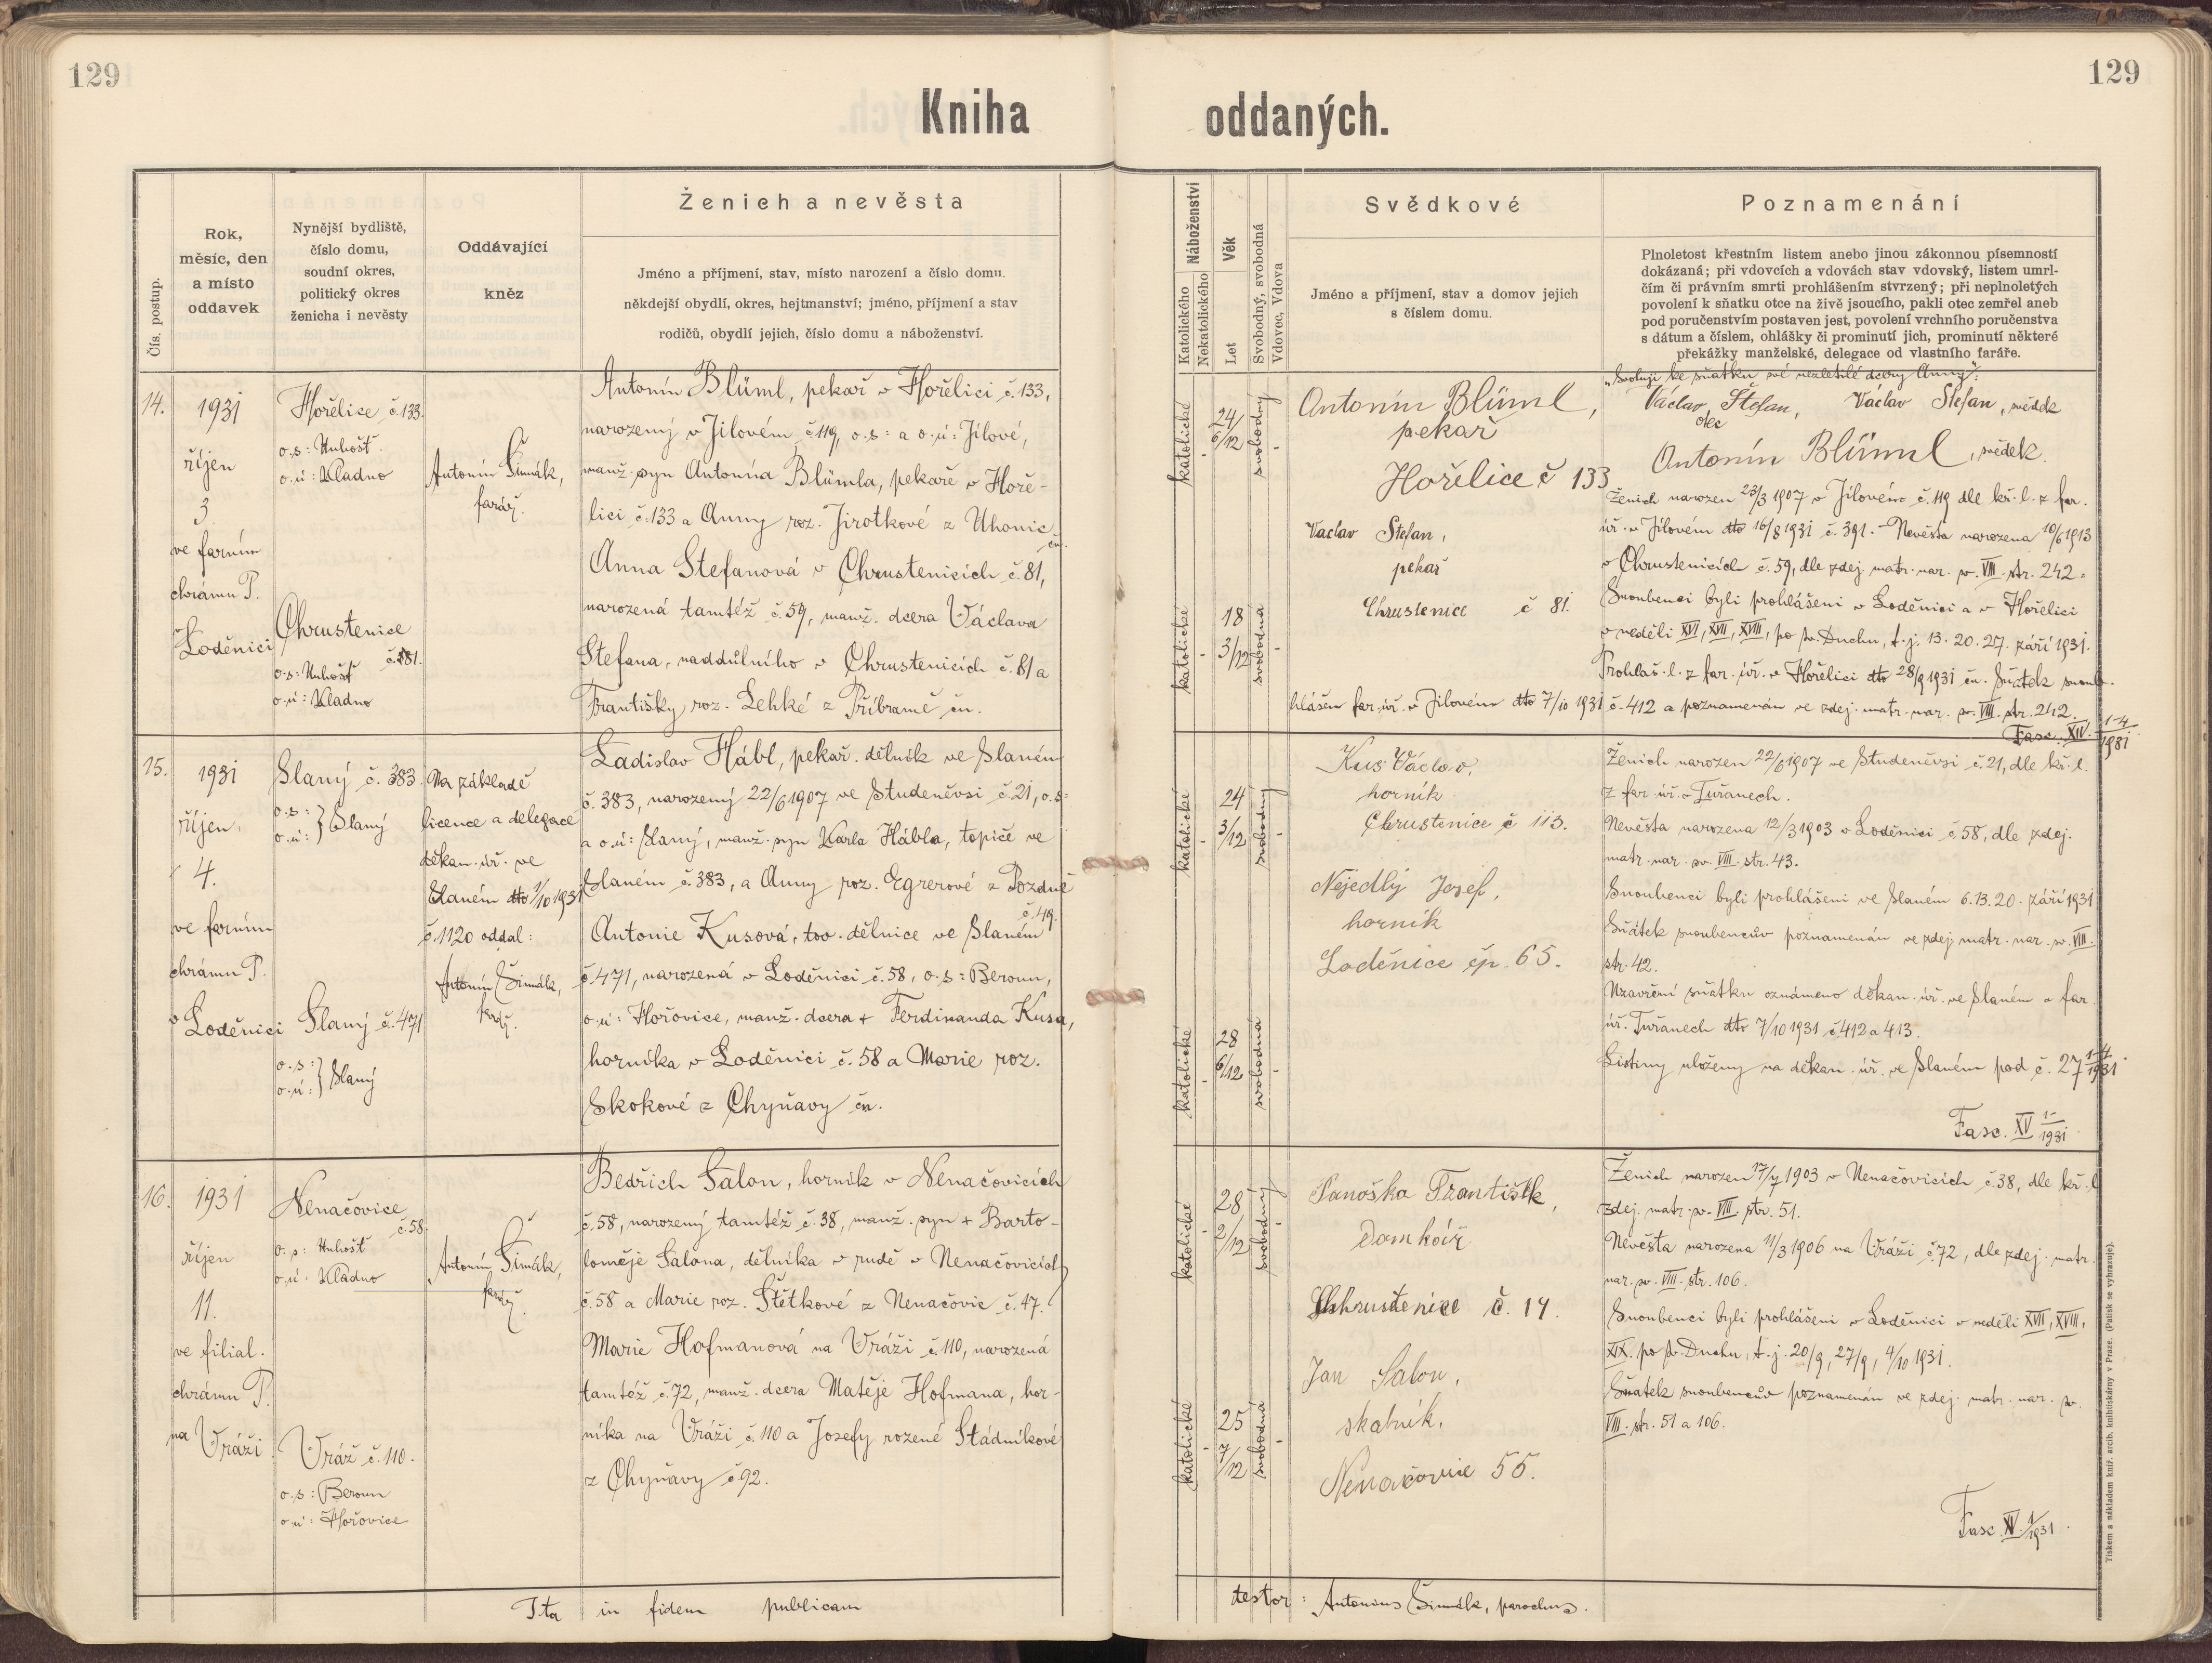 129
129
Kniha oddaných.
Čís. postup.
Rok,
měsíc, den
a místo
oddavek
Nynější bydliště,
číslo domu,
soudní okres,
politický okres
ženicha i nevěsty
Oddávající
kněz
Ženich a nevěsta
Jméno a příjmení, stav, místo narození a číslo domu.
někdejší obydlí, okres, hejtmanství; jméno, příjmení a stav
rodičů, obydlí jejich, číslo domu a náboženství.
Náboženství
Katolického
Nekatolického
Věk
Let
Svobodný, svobodná
Vdovec, Vdova
Svědkové
Jméno a příjmení, stav a domov jejich
s číslem domu.
Poznamenání
Plnoletost křestním listem anebo jinou zákonnou písemností
dokázaná; při vdovcích a vdovách stav vdovský, listem umrl-
čím či právním smrti prohlášením stvrzený; při neplnoletých
povolení k sňatku otce na živě jsoucího, pakli otec zemřel aneb
pod poručenstvím postaven jest, povolení vrchního poručenstva
s dátum a číslem, ohlášky či prominutí jich, prominutí některé
překážky manželské, delegace od vlastního faráře.
14.
1931
říjen
3
ve farním
chrámu P.
v Loděnici
Hořelice č. 133.
o.s: Unhošť
o.ú: Kladno
Chrustenice
č. 81.
o.s: Unhošť
o.ú: Kladno
Antonín Šimák,
farář.
Antonín Blüml, pekař v Hořelici č. 133,
narozený v Jílovém č 119, o.s: a o.ú: Jílové,
manž. syn Antonína Blümla, pekaře v Hoře-
lici č. 133 a Anny roz. Jirotkové z Úhonic
čn.
Anna Štefanová v Chrustenicích č. 81,
narozená tamtéž č. 59, manž. dcera Václava
Štefana, naddůlního v Chrustenicích č. 81 a
Františky roz. Lehké z Příbramě čn.
katolické
24
6/12
svobodný
katolické
18
3/12
svobodná
Antonín Blüml,
pekař
Hořelice č 133
Vaclav Štefan,
pekař
Chrustenice č 81.
"Svoluji ke sňatku své nezletilé dcery Anny":
Václav Štefan,
otec
Václav Štefan, svědek
Antonín Blüml, svědek.
Ženich narozen 23/3 1907 v Jílovém č. 119 dle kř. l. z far.
úř. v Jílovém dto 16/8 1931 č. 391. - Nevěsta narozena 10/6 1913
v Chrustenicích č. 59, dle zdej. matr. nar. sv. VIII. str. 242.
Snoubenci byli prohlášeni v Loděnici a v Hořelici
v neděli XVI, XVII, XVIII, po sv. Duchu, t. j. 13. 20. 27. září 1931.
Prohláš. l. z far. úř. v Hořelici dto 28/9 1931 čn. Sňatek snoub.
hlášen far. úř. v Jílovém dto 7/10 1931 č. 412 a poznamenán ve zdej. matr. nar. sv. VIII. str. 242.
Fasc. XIV. 1-4/1931
15.
1931
říjen,
4.
ve farním
chrámu P.
v Loděnici
Slaný č. 383.
o.s:
o.ú: } Slaný
Slaný č. 471
o.s:
o.ú: } Slaný
Na základě
licence a delegace
děkan. úř. ve
Slaném dto 1/10 1931
č. 1120 oddal:
Antonín Šimák,
farář.
Ladislav Hábl, pekař. dělník ve Slaném
č. 383, narozený 22/6 1907 ve Studeněvsi č. 21, o.s:
a o.ú: Slaný, manž. syn Karla Hábla, topiče ve
Slaném č. 383, a Anny roz. Egrerové z Pozdně
č. 49.
Antonie Kusová, tov. dělnice ve Slaném
č. 471, narozená v Loděnici č. 58, o.s: Beroun,
o.ú: Hořovice, manž. dcera + Ferdinanda Kusa,
horníka v Loděnici č. 58 a Marie roz.
Skokové z Chyňavy čn.
katolické
24
3/12
svobodný
katolické
28
6/12
svobodná
Kus Václav,
horník
Chrustenice č 113.
Nejedlý Josef,
horník
Loděnice čp. 65.
Ženich narozen 22/6 1907 ve Studeněvsi č. 21, dle kř. l.
z far. úř. v Tuřanech.
Nevěsta narozena 12/3 1903 v Loděnici č. 58, dle zdej.
matr. nar. sv. VIII. str. 43.
Snoubenci byli prohlášeni ve Slaném 6. 13. 20. září 1931
Sňatek snoubencův poznamenán ve zdej. matr. nar. sv. VIII.
str. 42.
Uzavření sňatku oznámeno děkan. úř. ve Slaném a far.
úř. Tuřanech dto 7/10 1931 č. 412 a 413.
Listiny uloženy na děkan. úř. ve Slaném pod č. 27 1-4/1931.
Fasc. XV 1-/1931
16.
1931
říjen
11.
ve filial.
chrámu P.
na Vráži
Nenačovice
č. 58.
o.s: Unhošť
o.ú: Kladno
Vráž č. 110.
o.s: Beroun
o.ú: Hořovice
Antonín Šimák,
farář.
Bedřich Salon, horník v Nenačovicích
č. 58, narozený tamtéž č. 38, manž. syn + Barto-
loměje Salona, dělníka v rudě v Nenačovicích
č. 58 a Marie roz. Štětkové z Nenačovic č. 47.
Marie Hofmanová na Vráži č. 110, narozená
tamtéž č. 72, manž. dcera Matěje Hofmana, hor-
níka na Vráži č. 110 a Josefy rozené Stádníkové
z Chyňavy č 92.
katolické
28
2/12
svobodný
katolické
25
7/12
svobodná
Panoška František,
Domkář
Chrustenice č. 14.
Jan Salon,
skalník,
Nenačovice 55.
Ženich narozen 17/7 1903 v Nenačovicích č. 38, dle kř. l
zdej. matr. sv. VIII. str. 51.
Nevěsta narozena 11/3 1906 na Vráži č. 72, dle zdej. matr.
nar. sv. VIII. str. 106.
Snoubenci byli prohlášeni v Loděnici v neděli XVII, XVIII,
XIX. po sv. Duchu, t. j. 20/9, 27/9, 4/10 1931.
Sňatek snoubencův poznamenán ve zdej. matr. nar. sv.
VIII. str. 51 a 106.
Fasc. XV. 1/1931.
Ita in fidem publicam testor: Antonius Šimák, parochus.
Tiskem a nákladem kníž. arcib. knihtiskárny v Praze. (Patisk se vyhrazuje).